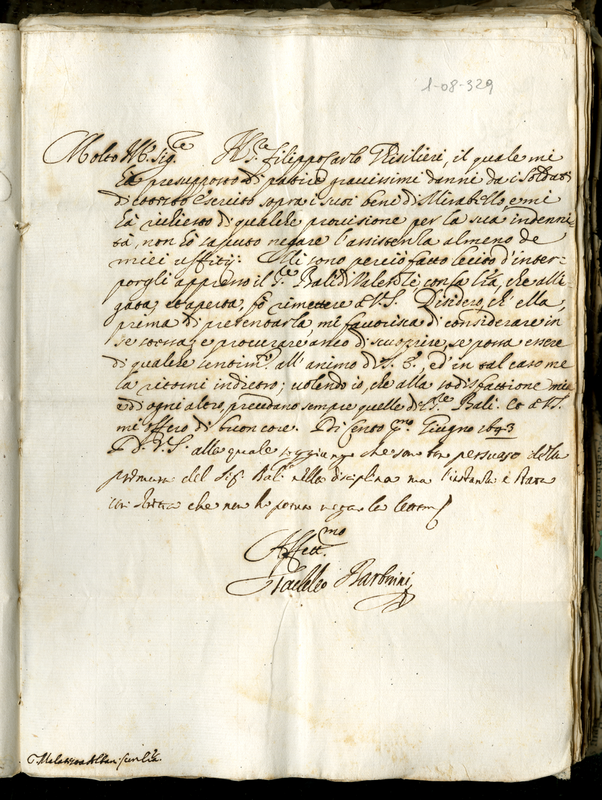 1-08-329
Molto Ill. Sig.re Il S.r Filippo Carlo Ghisilieri, il quale mi
hà presupposto di patire gravissimi danni da i Soldati
di cotesto Esercito sopra i suoi beni di Mirabello, e mi
hà richiesto di qualche provisione per la sua indenni-
tà, non hò saputo negare l'assistenza almeno de
miei uffitij: Mi sono perciò fatto lecito d'inter-
porgli appresso il S.r Balì di Valensè con la l'ra, che alli-
gata, et aperta, fò rimettere à V.S. Desidero, ch'ella,
prima di presentarla, mi favorisca di considerare in
se stessa, e procurare anco di scuoprire, se possa essere
di qualche sentim.to all'animo di S. E., ed'in tal caso me
la ritorni indietro; volendo io, che alla sodisfattione mia
e di ogni altro, precedano sempre quelle del S.r Balì. Et à V.S.
mi offero di buon core. Di Cento p.mo Giugno 1643
D. V. S. alla quale soggiungo che sono ben persuaso della
premura del Sig. Balì nella disciplina ma l'instanza è stata
che non hò potuto negar la lettera
Affett.mo
Taddeo Barberini